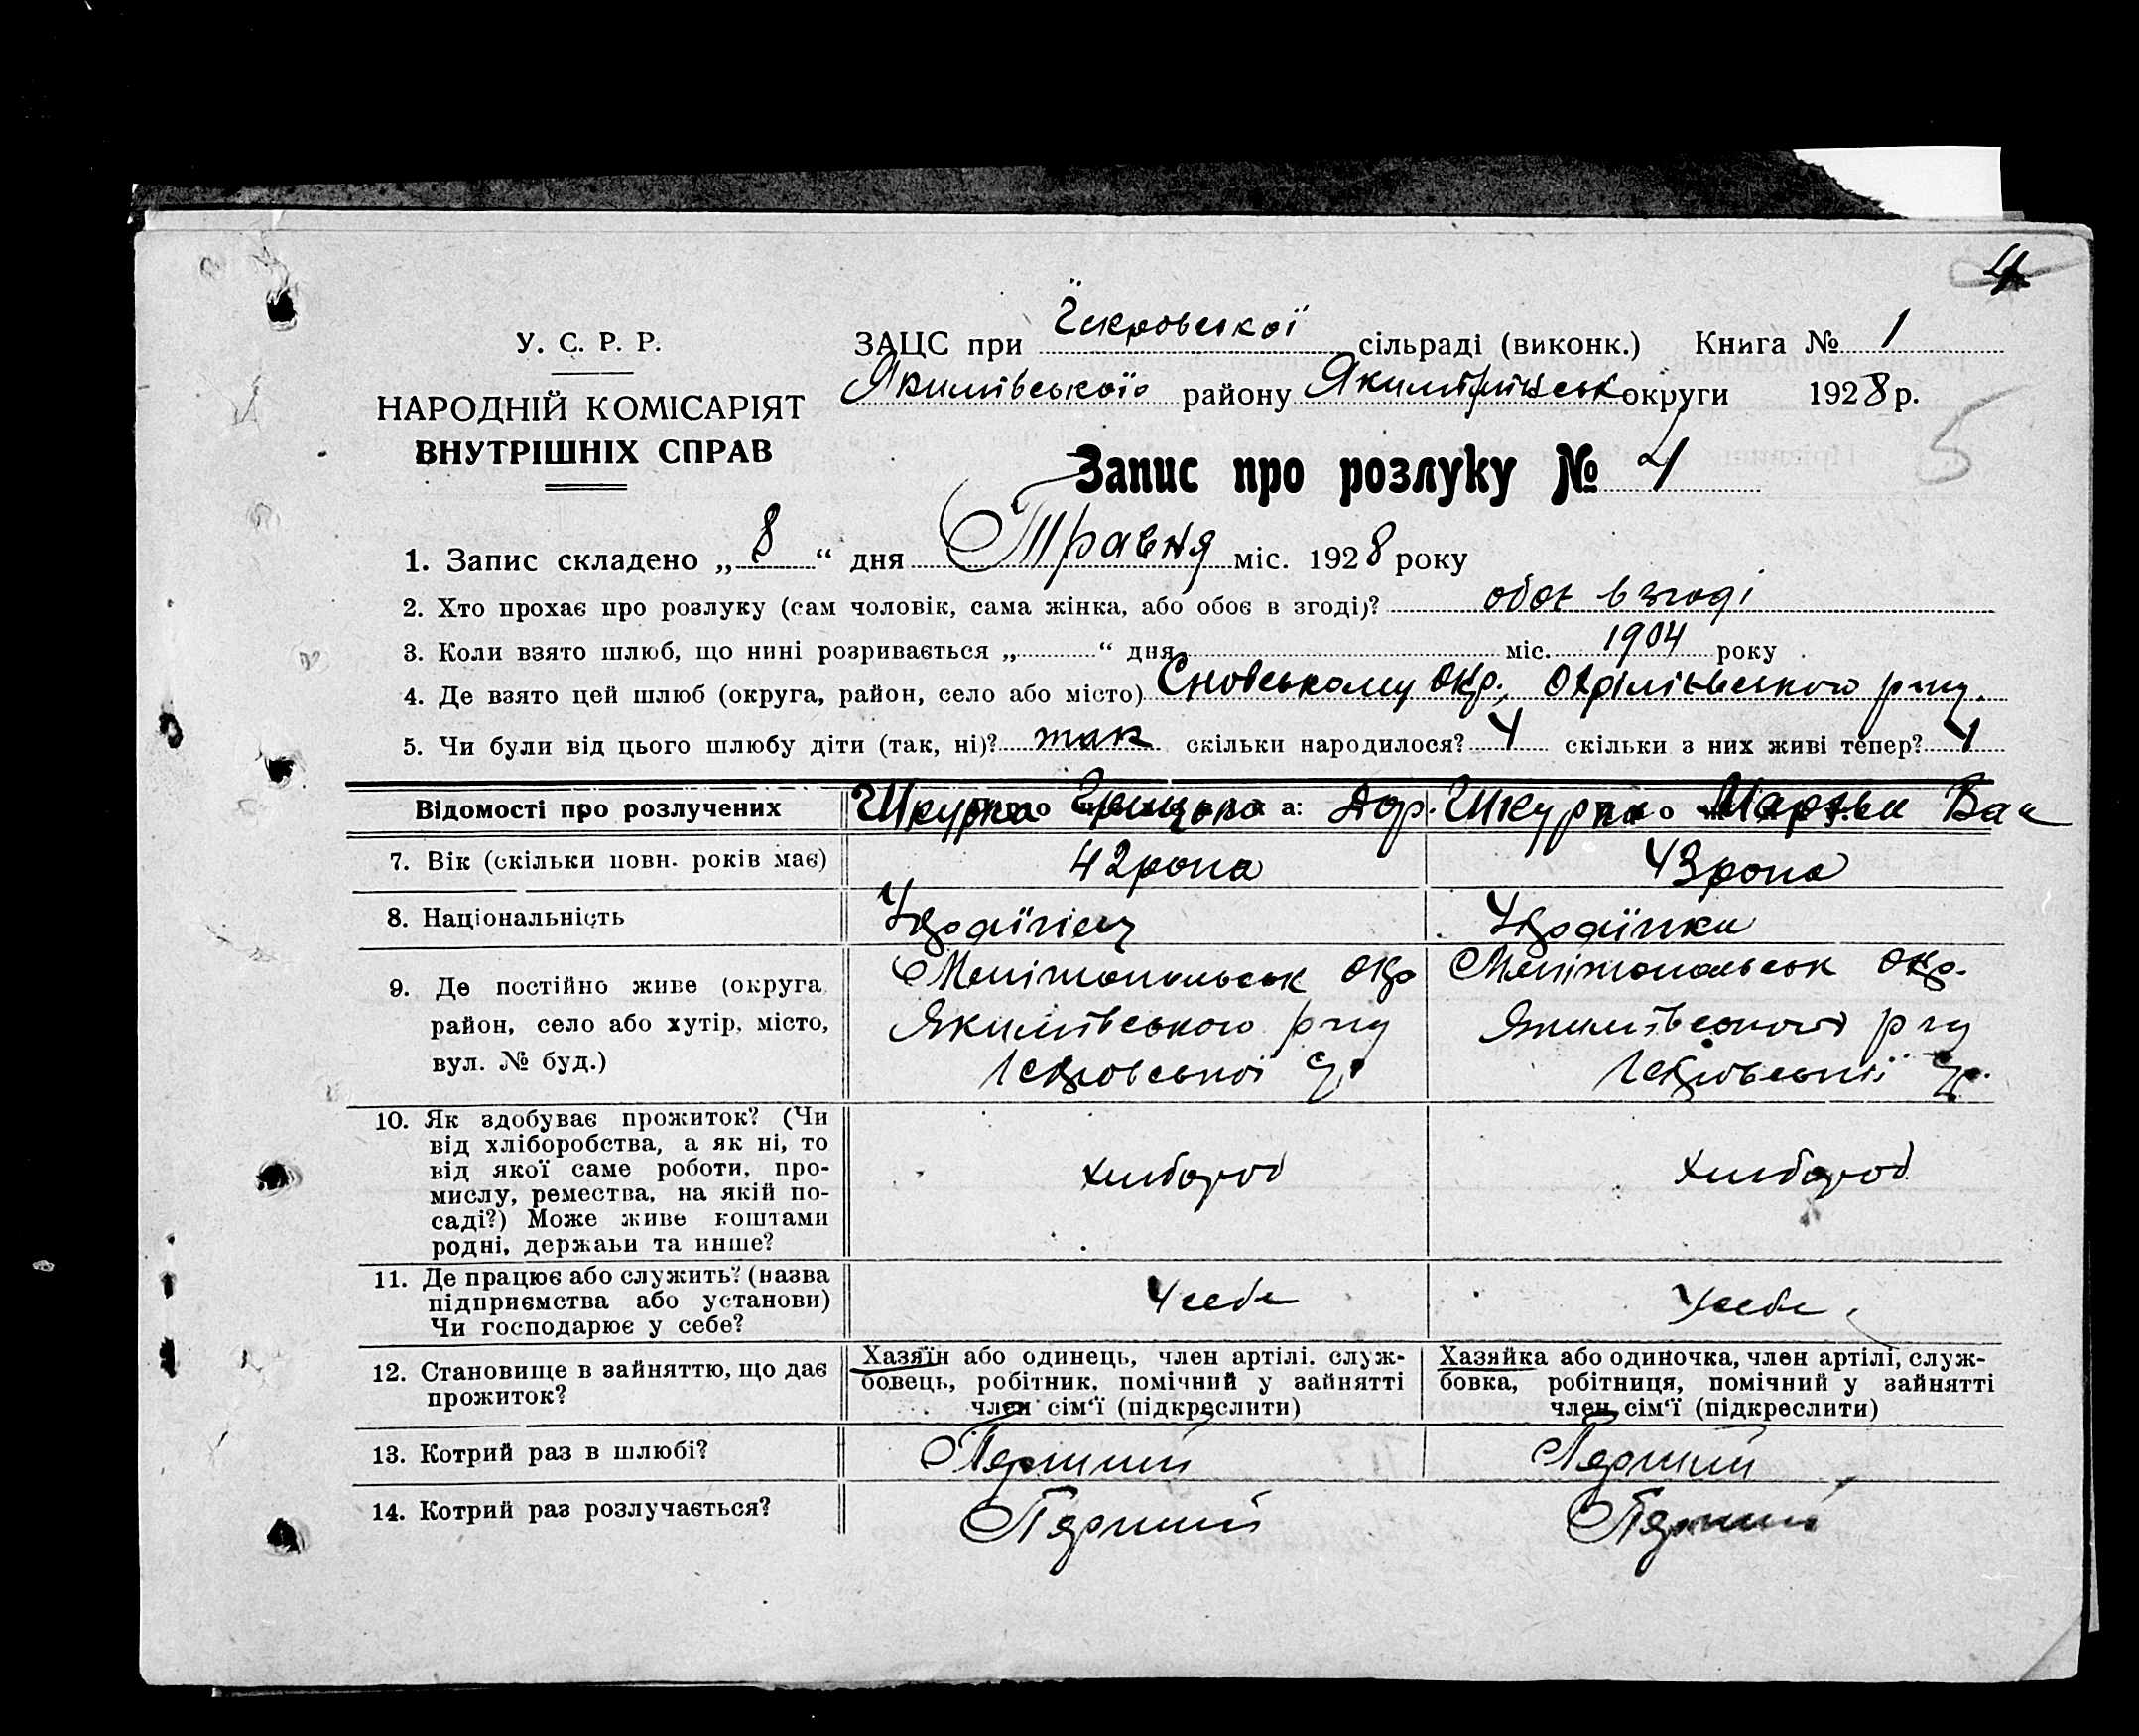 4
У. С. Р. Р.
НАРОДНІЙ КОМІСАРІЯТ
ВНУТРІШНІХ СПРАВ
ЗАЦС при сільраді (виконк.) Книга № 1
Якимівської району округи 1928 р.
5
Запис про розлуку № 4
1. Запис складено „ 8 “ дня Травня міс. 1928 року
2. Хто прохає про розлуку (сам чоловік, сама жінка, або обоє в згоді)? обоє в згоді
3. Коли взято шлюб, що нині розривається „ “ дня міс. 1904 року
4. Де взято цей шлюб (округа, район, село або місто) Сновському окр., р-ну.
5. Чи були від цього шлюбу діти (так, ні)? так скільки народилося? 4 скільки з них живі тепер? 4
Відомості про розлучених
7. Вік (скільки повн. років має) 42 рока 43 рока
8. Національність
9. Де постійно живе (округа район, село або хутір, місто, вул. № буд.)
Мелітопольськ окр Мелітопольськ окр.
Якимівського р-ну Якимівського р-ну
10. Як здобуває прожиток? (Чи
від хліборобства, а як ні, то
від якої саме роботи, про-
мислу, ремества, на якій по-
саді?) Може живе коштами
родні, держави та инше?
хлібороб хлібороб
11. Де працює або служить? (назва
підприємства або установи)
Чи господарює у себе?
У себе У себе
12. Становище в зайняттю, що дає
прожиток?
Хазяїн або одинець, член артілі. служ-
бовець, робітник, помічний у зайнятті
член сім'ї (підкреслити)
Хазяйка або одиночка, член артілі, служ-
бовка, робітниця, помічний у зайнятті
член сім'ї (підкреслити)
13. Котрий раз в шлюбі? Перший Перший
14. Котрий раз розлучається? Перший Перший